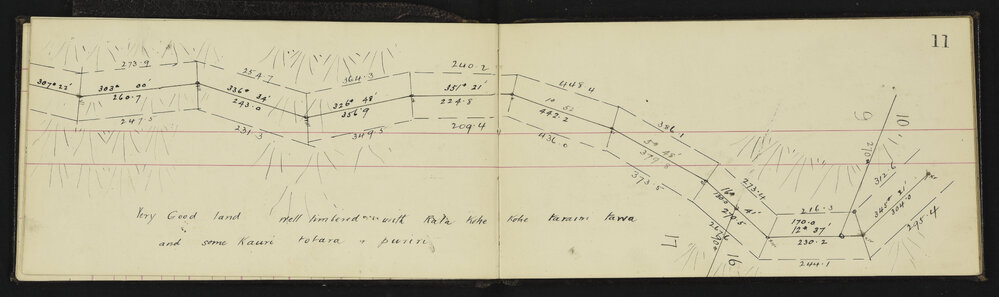 11
307° 22'
273.9
303° 00'
260.7
247.5
254.7
336° 34'
243.0
231.3
364.3
326° 48'
356.9
349.5
240.2
351° 21'
224.8
209.4
448.4
1° 51'
442.2
436.0
386.1
5° 48'
379.8
373.5
273.4
16° 41'
270.5
267.6
90°
16
17
216.3
170.0
12° 37'
230.2
244.1
10
9
270°
312.6
345° 21'
304.0
295.4
Very Good land well timbered with Rata kohe kohe taraire tawa
and some Kauri totara + puriri